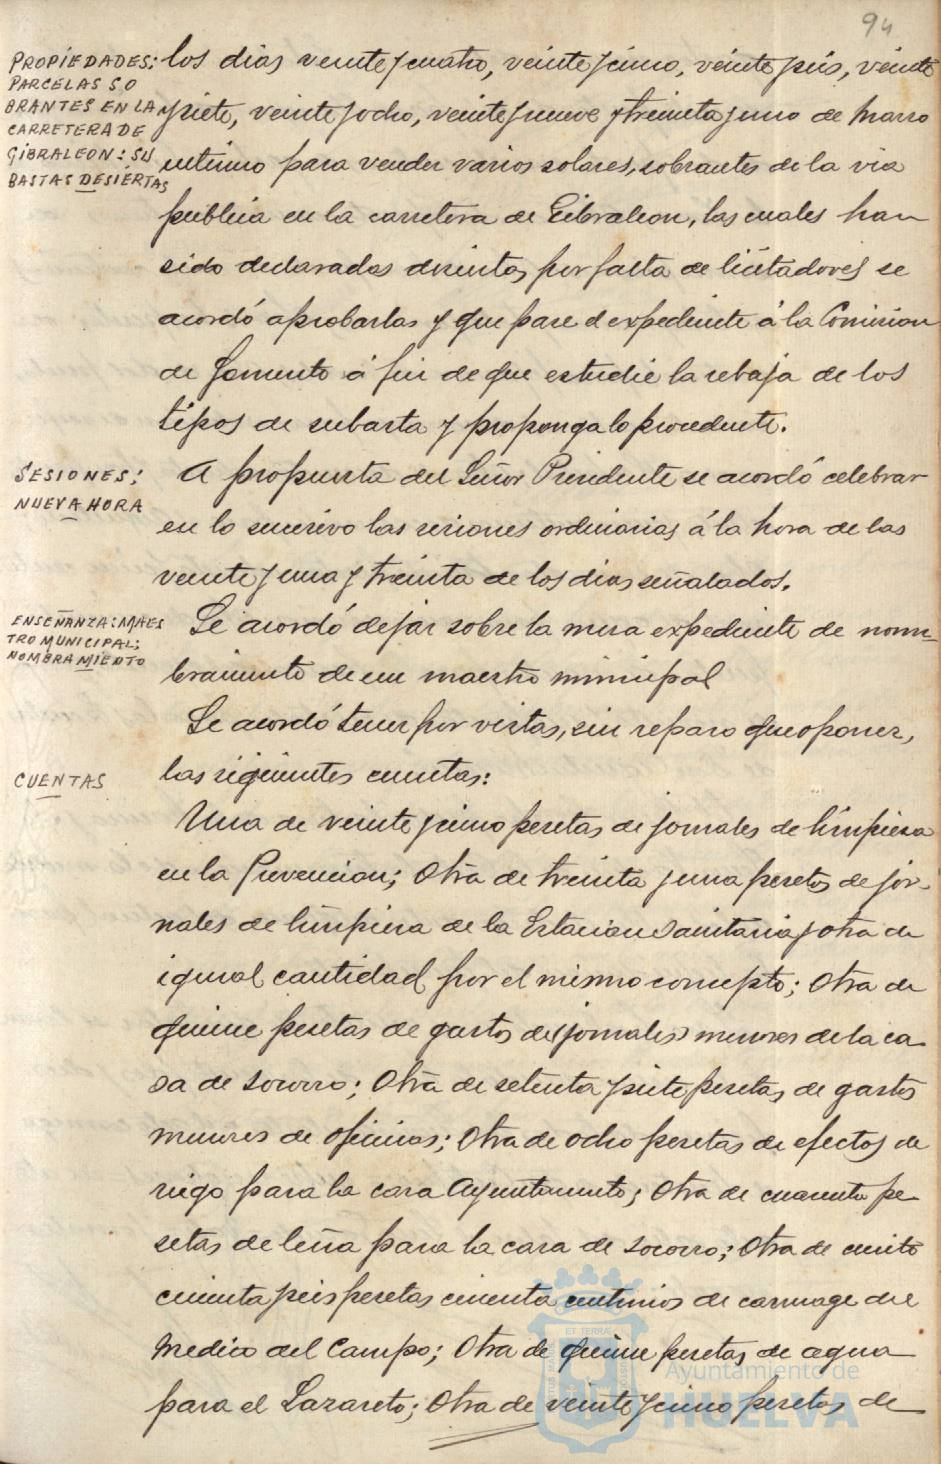 94
PROPIEDADES:
PARCELAS SO
BRANTES EN LA
CARRETERA DE
GIBRALEON: SU
BASTAS DESIERTAS
los dias veinte y cuatro, veinte y cinco, veinte y seis, veinte
y siete, veinte y ocho, veinte y nueve y treinta y uno de Marzo
ultimo para vender varios solares, sobrantes de la via
publica en la carretera de Gibraleon, las cuales han
sido declaradas desiertas por falta de licitadores se
acordó aprobarlas y que pase el expediente á la Comision
de Fomento á fin de que estudie la rebaja de los
tipos de subasta y proponga lo procedente.
SESIONES:
NUEVA HORA
A propuesta del Señor Presidente se acordó celebrar
en lo sucesivo las sesiones ordinarias á la hora de las
veinte y una y treinta de los dias señalados.
ENSEÑANZA: MAES
TRO MUNICIPAL;
NOMBRAMIENTO
Se acordó dejar sobre la mesa expediente de nom-
bramiento de un maestro municipal
Se acordó tener por vistas, sin reparo que oponer,
CUENTAS
las siguientes cuentas:
Una de veinte y cinco pesetas de jornales de limpieza
en la Prevencion; Otra de treinta y una pesetas de jor-
nales de limpieza de la Estacion Sanitaria y otra de
igual cantidad por el mismo concepto; Otra de
quince pesetas de gastos de (jornales) menores de la ca-
sa de Socorro; Otra de setenta y siete pesetas de gastos
menores de oficinas; Otra de ocho pesetas de efectos de
riego para la casa Ayuntamiento; Otra de cuarenta pe-
setas de leña para la casa de Socorro; Otra de ciento
cincuenta y seis pesetas cincuenta centimos de carruage del
Medico del Campo; Otra de quince pesetas de agua
para el Lazareto; Otra de veinte y cinco pesetas de
ET TERRAE
Ayuntamiento de
HUELVA